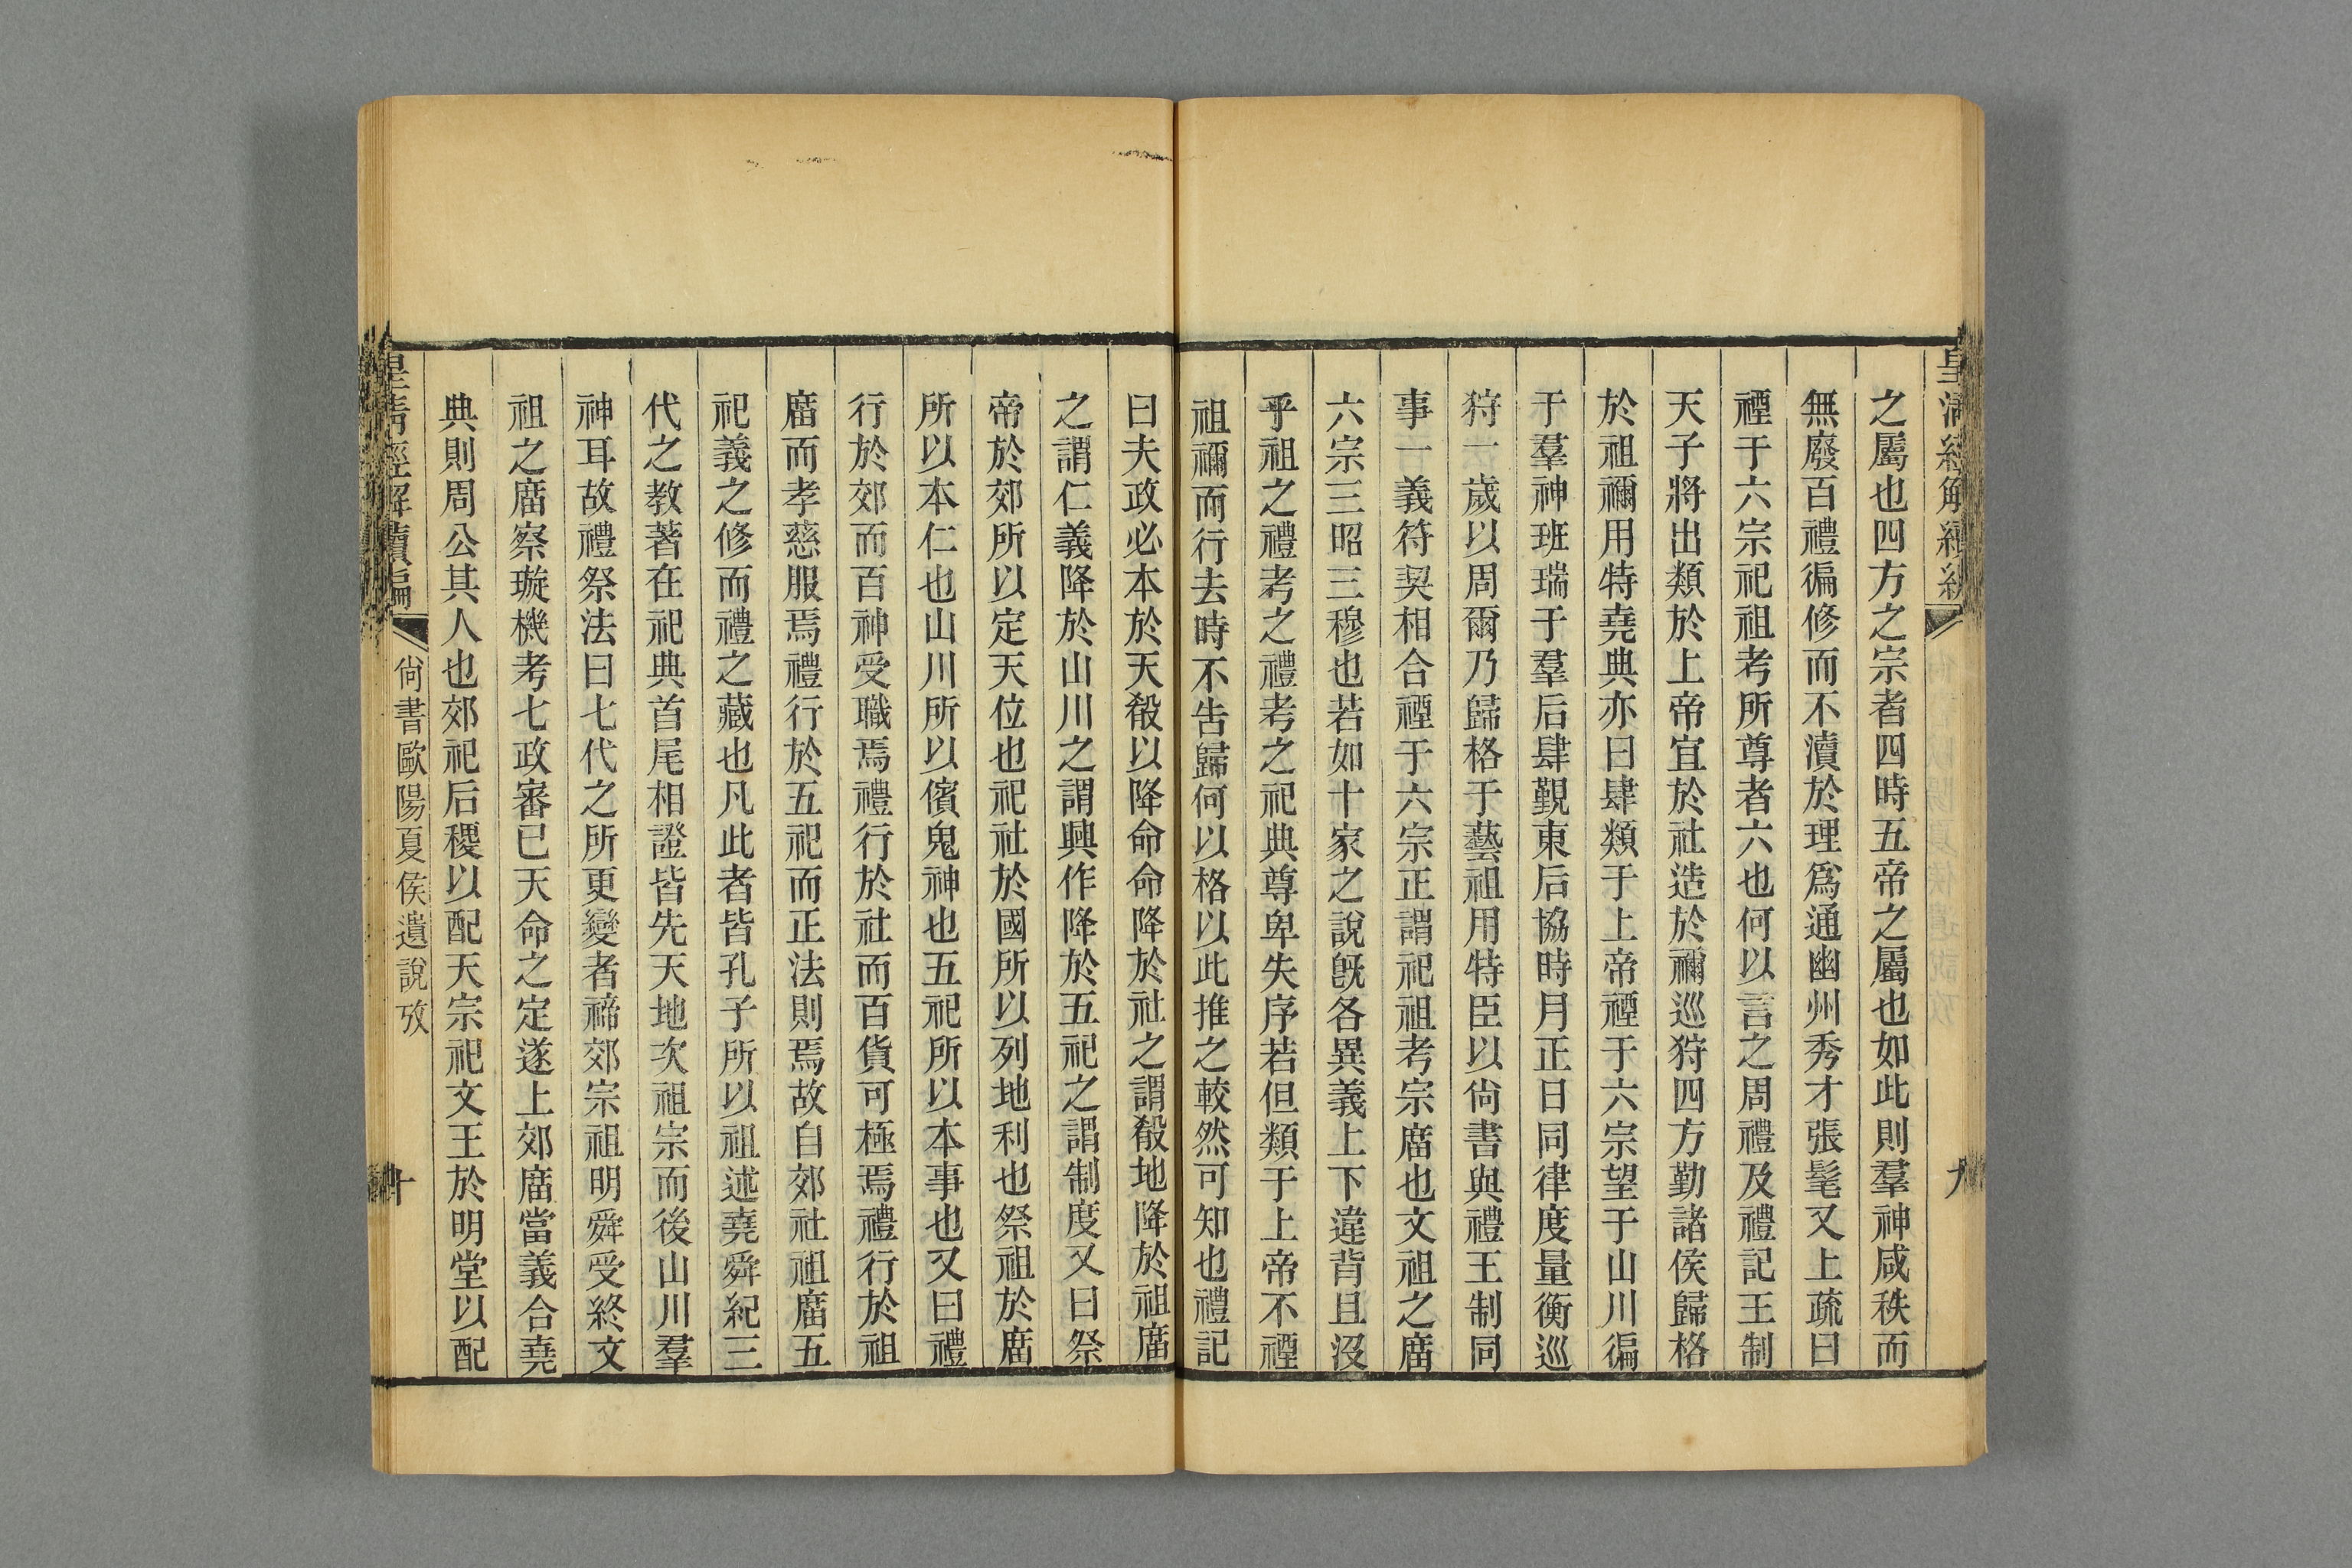 之屬也四方之宗者四時五帝之屬也如此則羣神咸秩而
無廢百禮徧修而不瀆於理爲通幽州秀才張髦又上疏曰
禋于六宗祀祖考所尊者六也何以言之周禮及禮記王制
天子將出類於上帝宜於社造於禰巡狩四方勤諸侯歸格
於祖禰用特堯典亦曰肆類于上帝禋于六宗望于山川徧
于羣神班瑞于羣后肆覲東后協時月正日同律度量衡巡
狩一歲以周爾乃歸格于藝祖用特臣以尙書與禮王制同
事一義符契相合禋于六宗正謂祀祖考宗庿也文祖之庿
六宗三昭三穆也若如十家之說旣各異義上下違背且沒
乎祖之禮考之禮考之祀典尊卑失序若但類于上帝不禋
祖禰而行去時不告歸何以格以此推之較然可知也禮記
曰夫政必本於天殽以降命命降於社之謂殽地降於祖庿
之謂仁義降於山川之謂興作降於五祀之謂制度又曰祭
帝於郊所以定天位也祀社於國所以列地利也祭祖於庿
所以本仁也山川所以儐鬼神也五祀所以本事也又曰禮
行於郊而百神受職焉禮行於社而百貨可極焉禮行於祖
庿而孝慈服焉禮行於五祀而正法則焉故自郊社祖庿五
祀義之修而禮之藏也凡此者皆孔子所以祖述堯舜紀三
代之教著在祀典首尾相證皆先天地次祖宗而後山川羣
神耳故禮祭法曰七代之所更變者禘郊宗祖明舜受終文
祖之庿察璇機考七政審已天命之定遂上郊庿當義合堯
典則周公其人也郊祀后稷以配天宗祀文王於明堂以配
皇清經解續編
尙書歐陽夏侯遺說攷
十